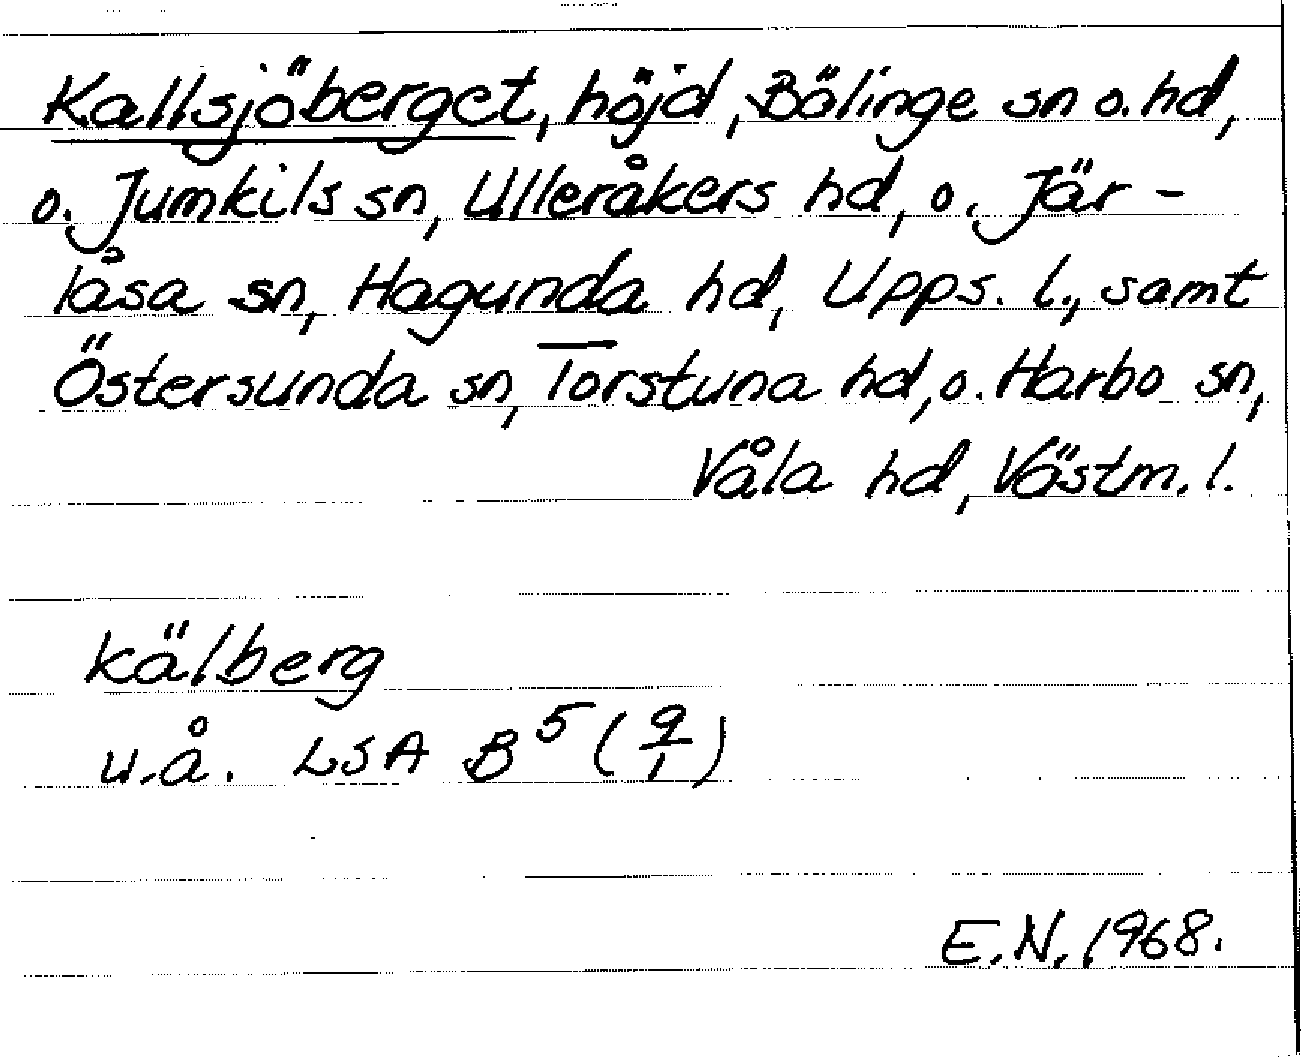 Kallsjöberget, höjd, Bälinge sn o. hd,
o. Jumkils sn, Ulleråkers hd, o. Jär-
låsa sn, Hagunda hd, Upps. l., samt
Östersunda sn, Torstuna hd, o. Harbo sn,
Våla hd, Västm. l.
kälberg
u.å. LSA B 5 (9/1)
E.N. 1968.